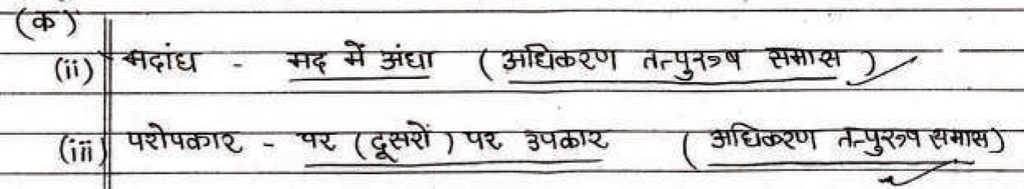 (क)
(ii) मदांध - मद में अंधा (अधिकरण तत्पुरुष समास)
(iii) परोपकार - पर (दूसरों) पर उपकार (अधिकरण तत्पुरुष समास)